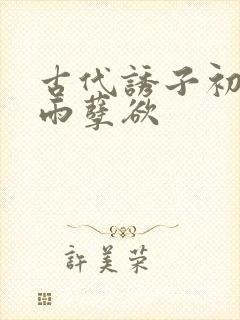 古代誘子初
雨孽欲
許美荣